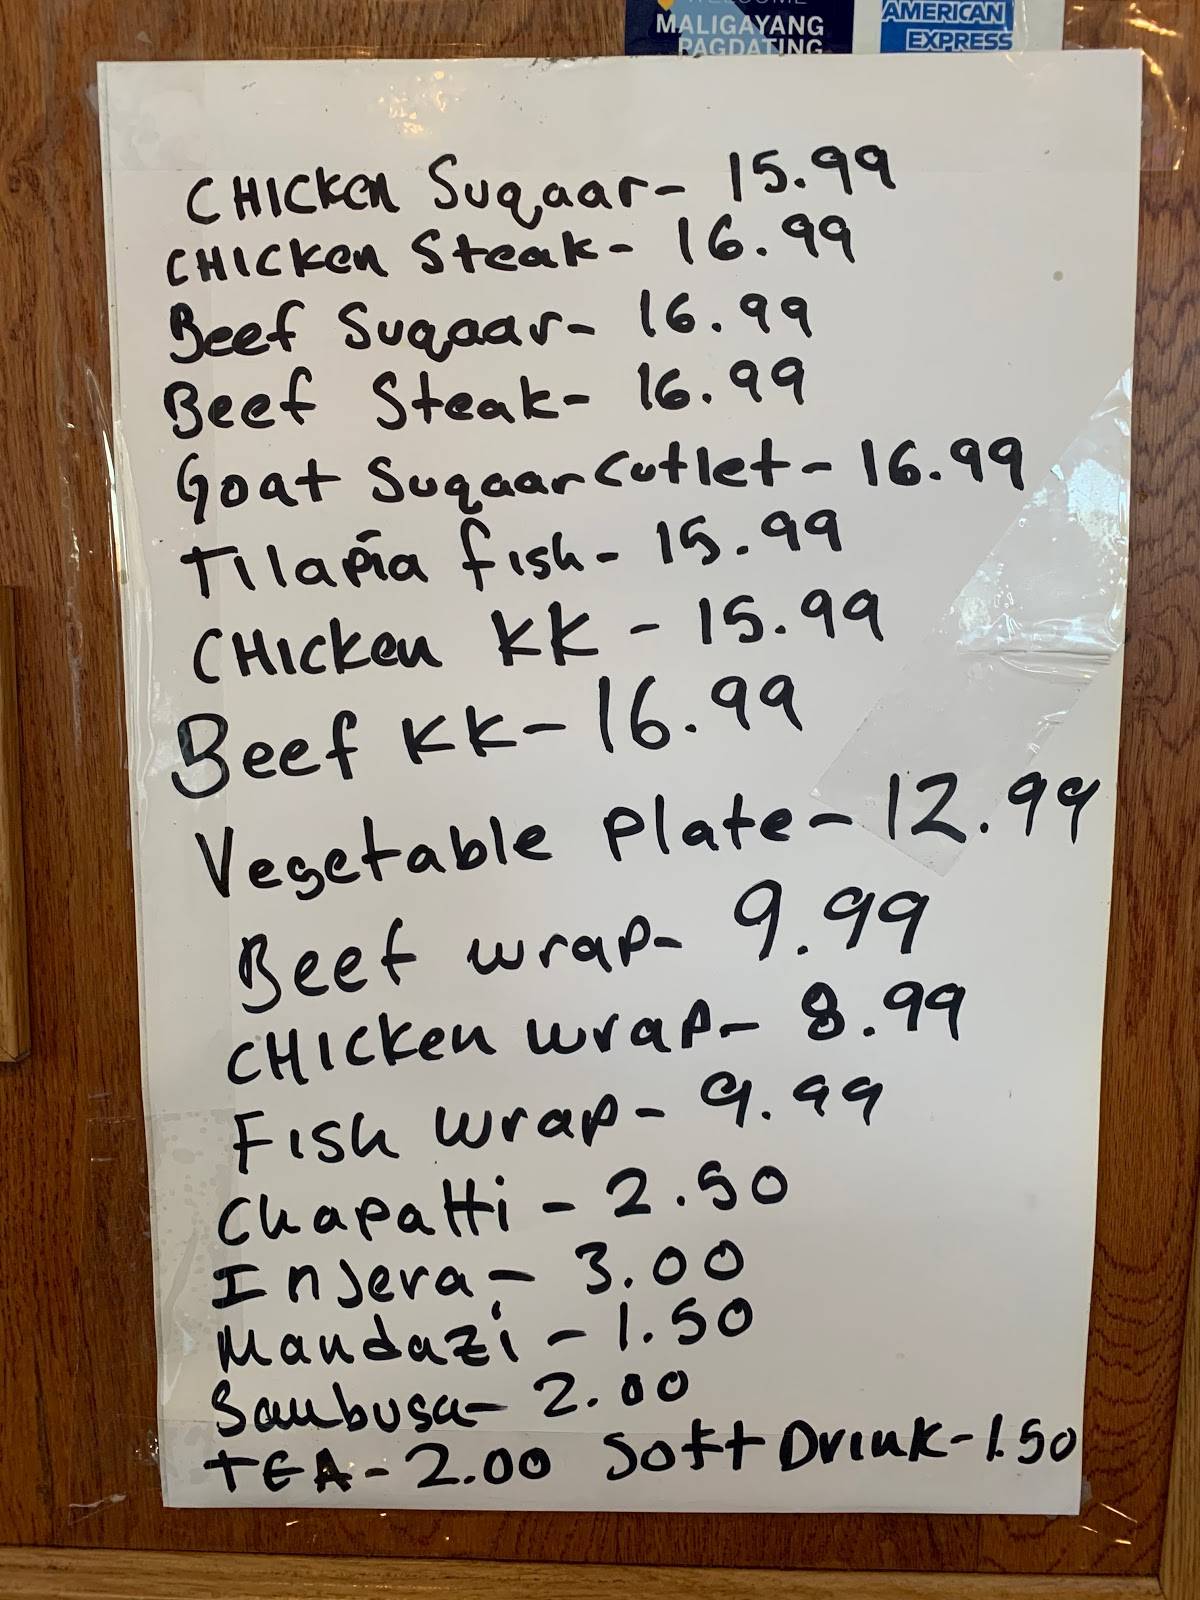 WELCOME
MALIGAYANG
PAGDATING
AMERICAN
EXPRESS
CHICKen Suqaar- 15.99
CHICken Steak- 16.99
Beef Suqaar- 16.99
Beef Steak- 16.99
Goat Suqaar Cutlet- 16.99
TIlapia fish- 15.99
CHIcken KK - 15.99
Beef KK- 16.99
Vegetable Plate- 12.99
Beef wrap- 9.99
CHIcken wrap- 8.99
Fish wrap- 9.99
Chapatti - 2.50
InJera- 3.00
Mandazi - 1.50
Sambusa- 2.00
TEA- 2.00 Soft Drink- 1.50